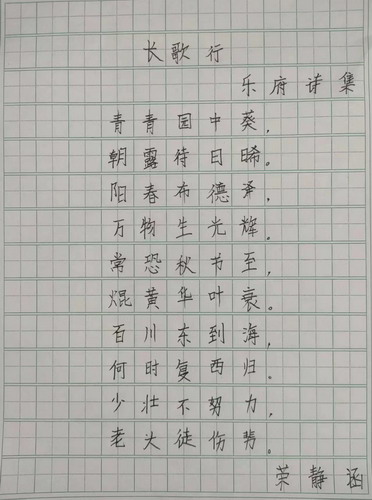 长歌行
乐府诗集
青青园中葵,
朝露待日晞。
阳春布德泽,
万物生光辉。
常恐秋节至,
焜黄华叶衰。
百川东到海,
何时复西归。
少壮不努力,
老大徒伤悲。
荣静涵